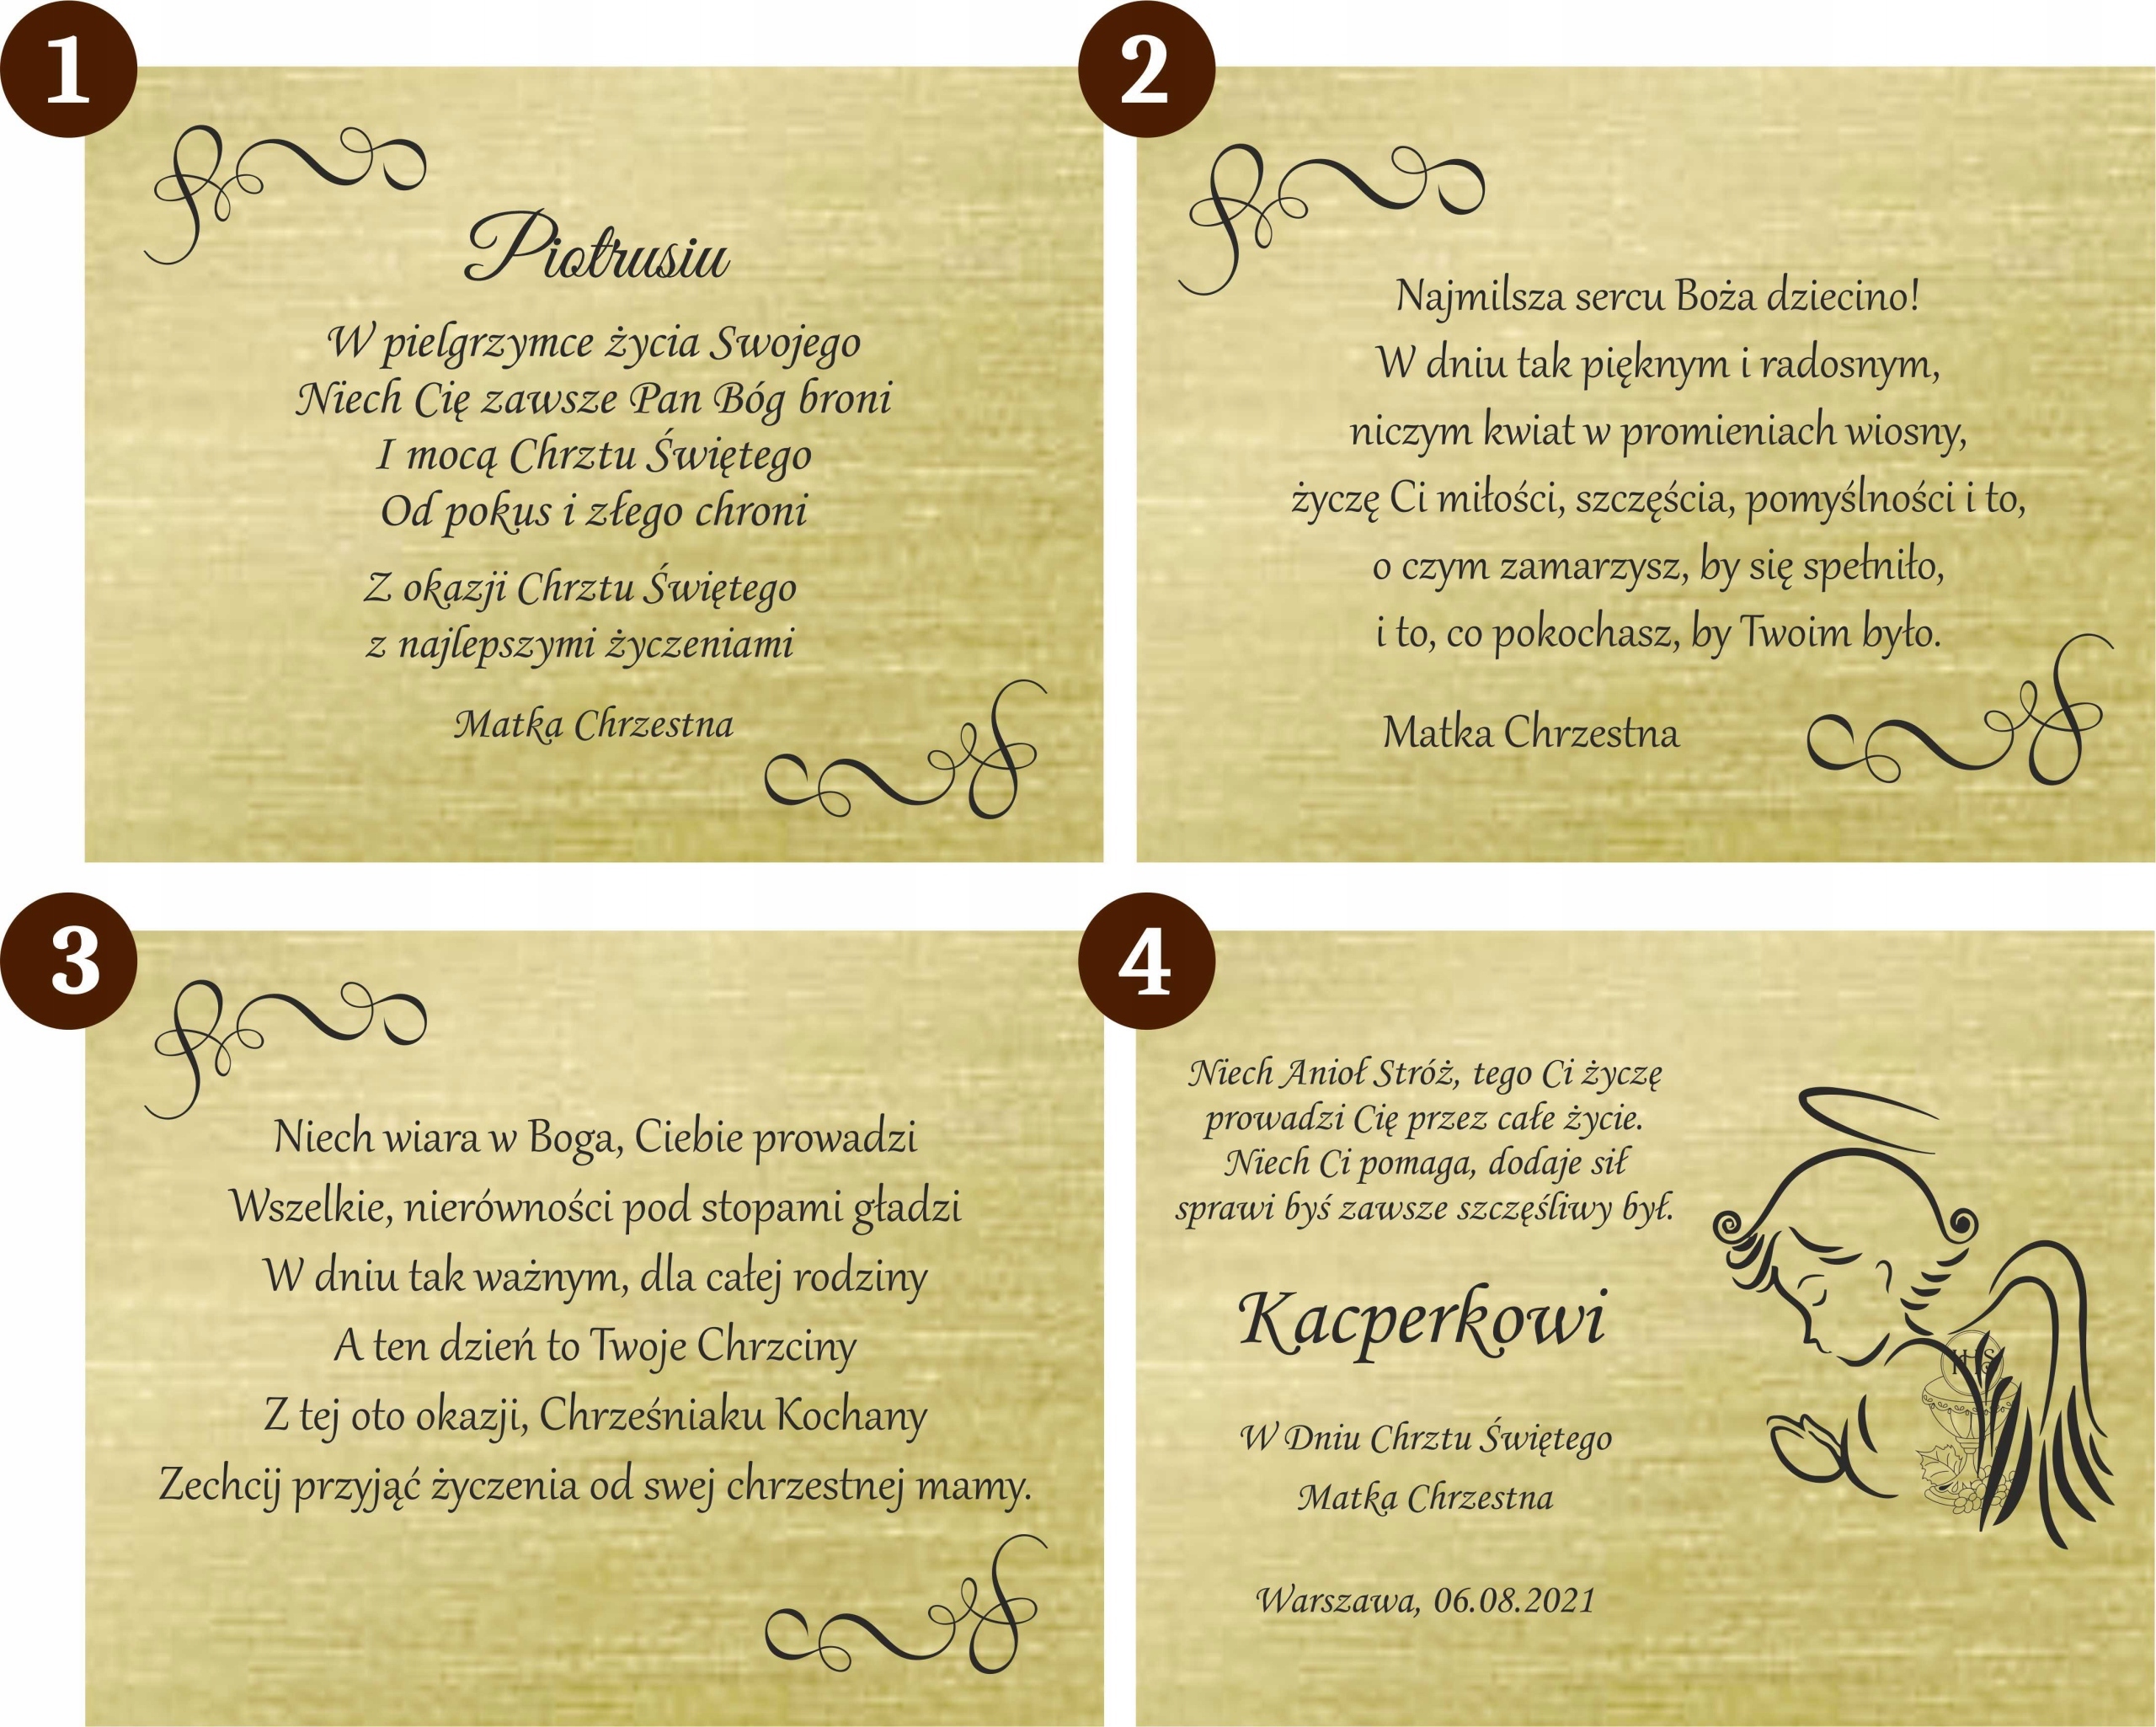 1
Piotrusiu
W pielgrzymce życia Swojego
Niech Cię zawsze Pan Bóg broni
I mocą Chrztu Świętego
Od pokus i złego chroni
Z okazji Chrztu Świętego
z najlepszymi życzeniami
Matka Chrzestna
2
Najmilsza sercu Boża dziecino!
W dniu tak pięknym i radosnym,
niczym kwiat w promieniach wiosny,
życzę Ci miłości, szczęścia, pomyślności i to,
o czym zamarzysz, by się spełniło,
i to, co pokochasz, by Twoim było.
Matka Chrzestna
3
Niech wiara w Boga, Ciebie prowadzi
Wszelkie, nierówności pod stopami gładzi
W dniu tak ważnym, dla całej rodziny
A ten dzień to Twoje Chrzciny
Z tej oto okazji, Chrześniaku Kochany
Zechcij przyjąć życzenia od swej chrzestnej mamy.
4
Niech Anioł Stróż, tego Ci życzę
prowadzi Cię przez całe życie.
Niech Ci pomaga, dodaje sił
sprawi byś zawsze szczęśliwy był.
Kacperkowi
W Dniu Chrztu Świętego
Matka Chrzestna
Warszawa, 06.08.2021
IHS